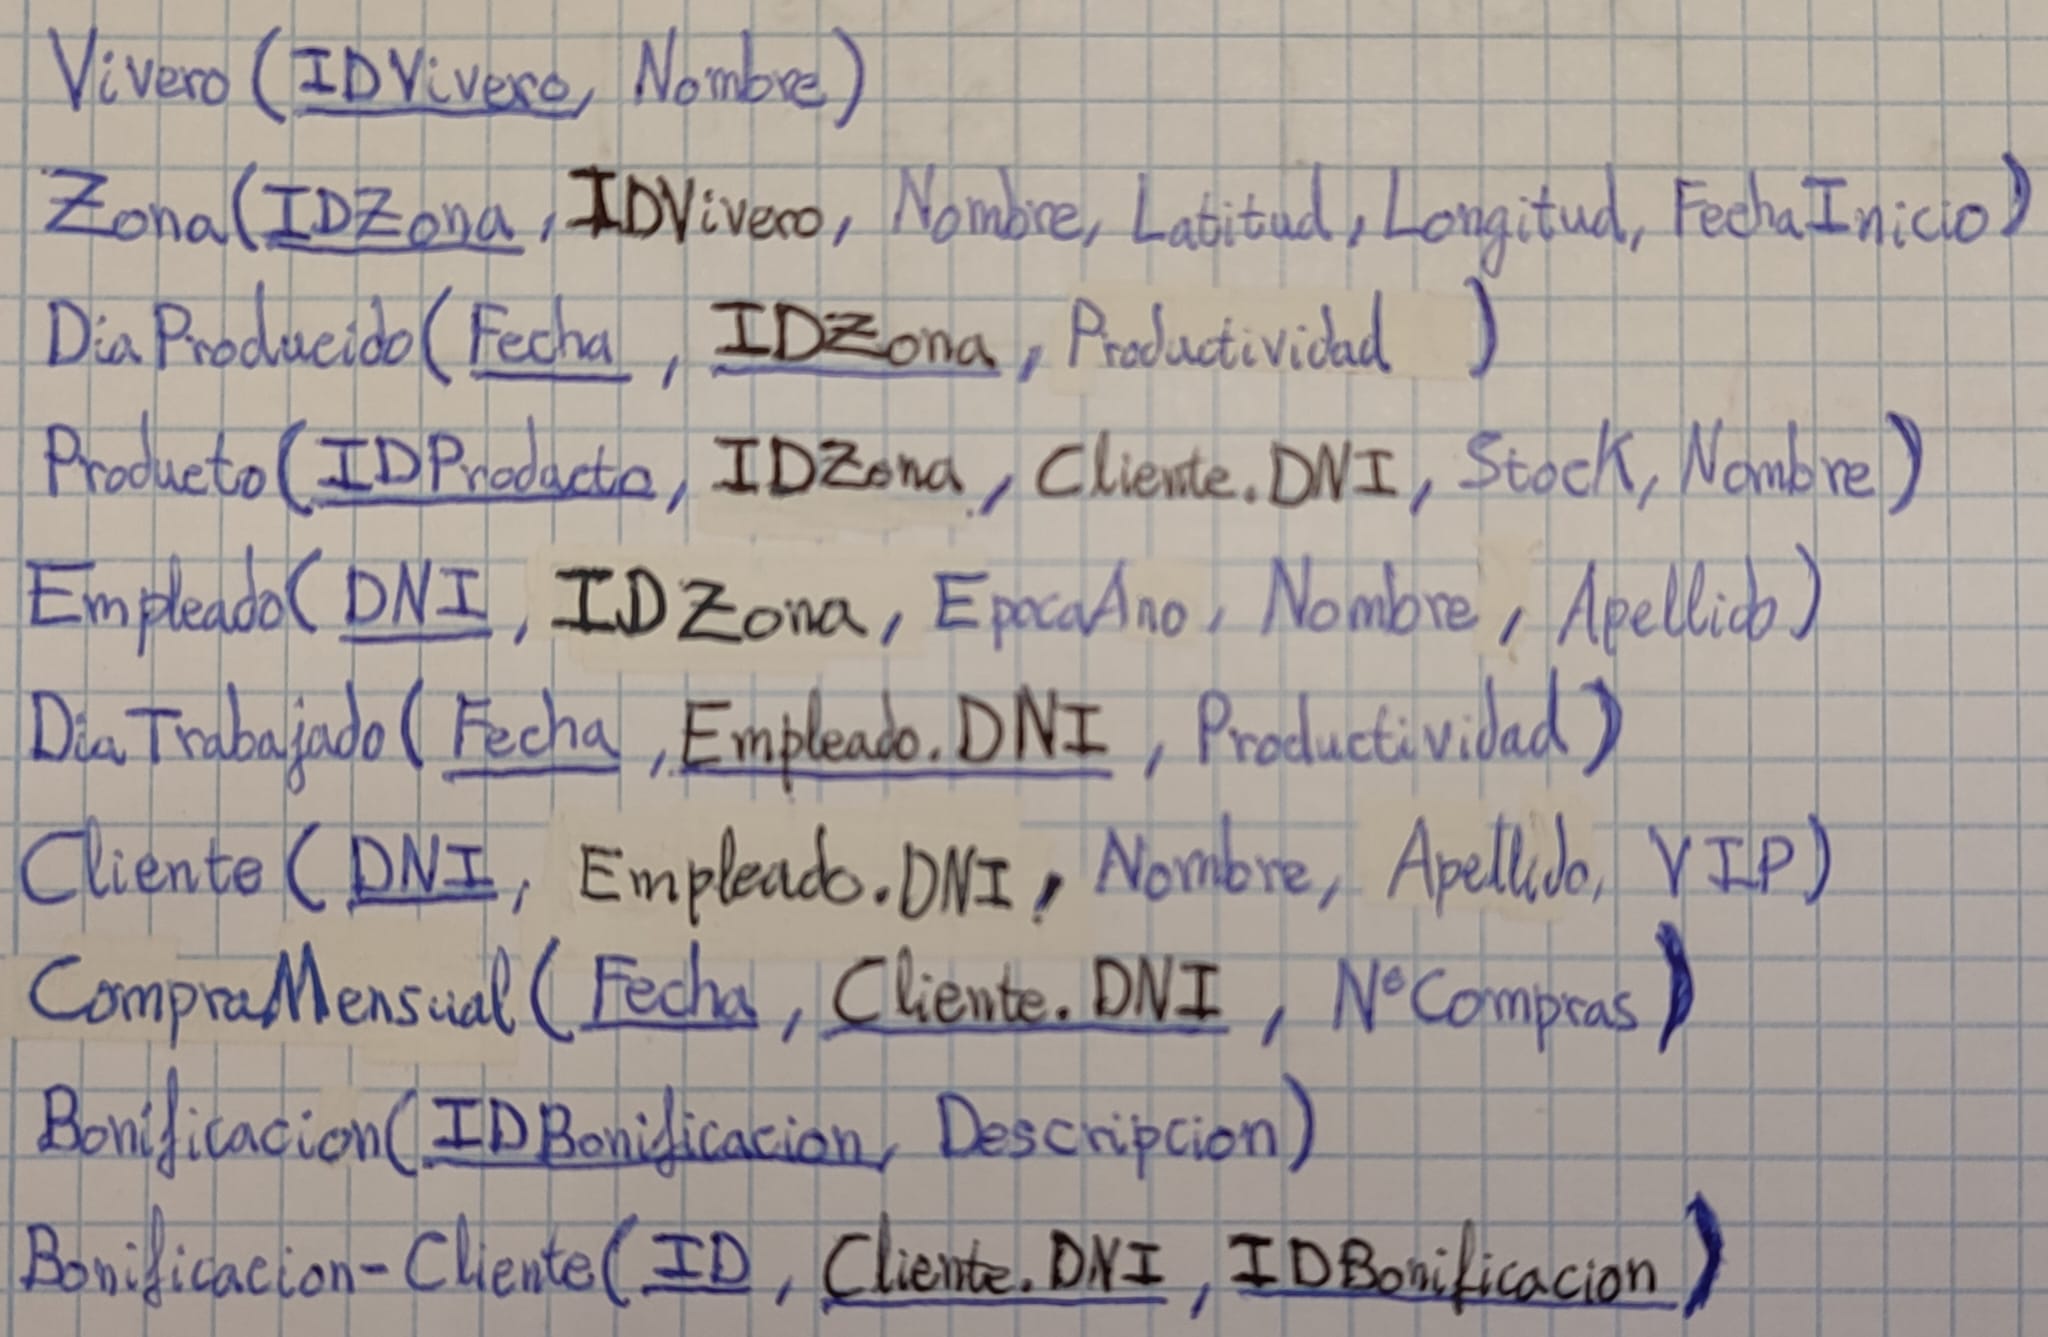 Vivero (IDVivero, Nombre)
Zona (IDZona, IDVivero, Nombre, Latitud, Longitud, FechaInicio)
DiaProducido (Fecha, IDZona, Productividad)
Producto (IDProducto, IDZona, Cliente.DNI, Stock, Nombre)
Empleado (DNI, IDZona, EpocaAno, Nombre, Apellido)
DiaTrabajado (Fecha, Empleado.DNI, Productividad)
Cliente (DNI, Empleado.DNI, Nombre, Apellido, VIP)
CompraMensual (Fecha, Cliente.DNI, NºCompras)
Bonificacion (IDBonificacion, Descripcion)
Bonificacion-Cliente (ID, Cliente.DNI, IDBonificacion)